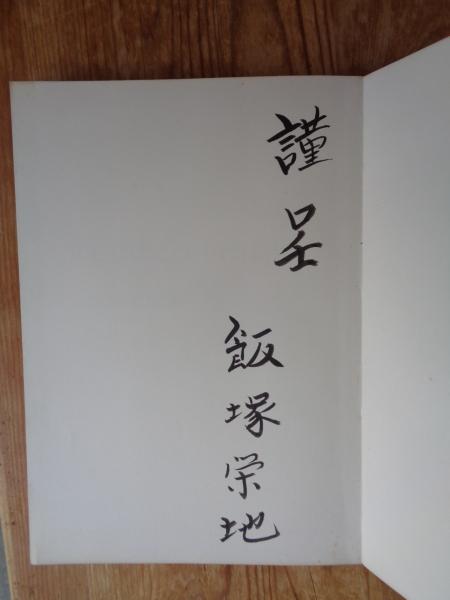 謹呈
飯塚栄地